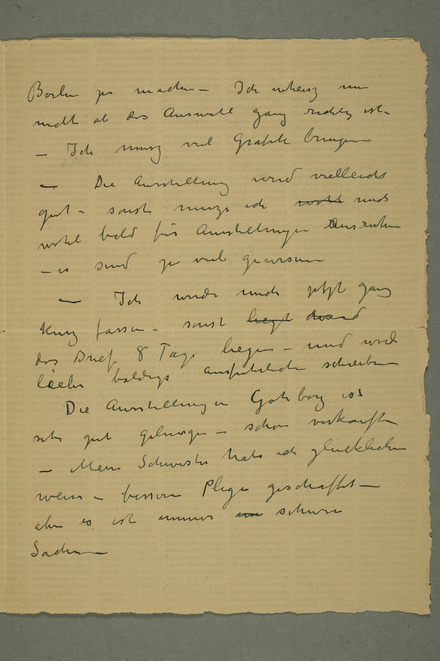 Berlin zu machen — Ich weiss nur
nicht ob das Auswahl ganz richtig ist.
— Ich muss viel Grafik bringen
— Die Ausstellung wird vielleicht
gut — sonst muss ich mich
wohl bald für Ausstellungen
— es sind zu viel gewesen
— Ich werde mich jetzt ganz
kurz fassen — sonst liegt
das Brief 8 Tage liegen — und will
lieber baldigst ausführlicher schreiben
Die Ausstellung in Goteborg ist
sehr gut gelungen — schon verkauft
— Mein Schwester hats ich glücklicher
weise — bessere Pflege geschafft —
aber es ist immer schwere
Sachen —